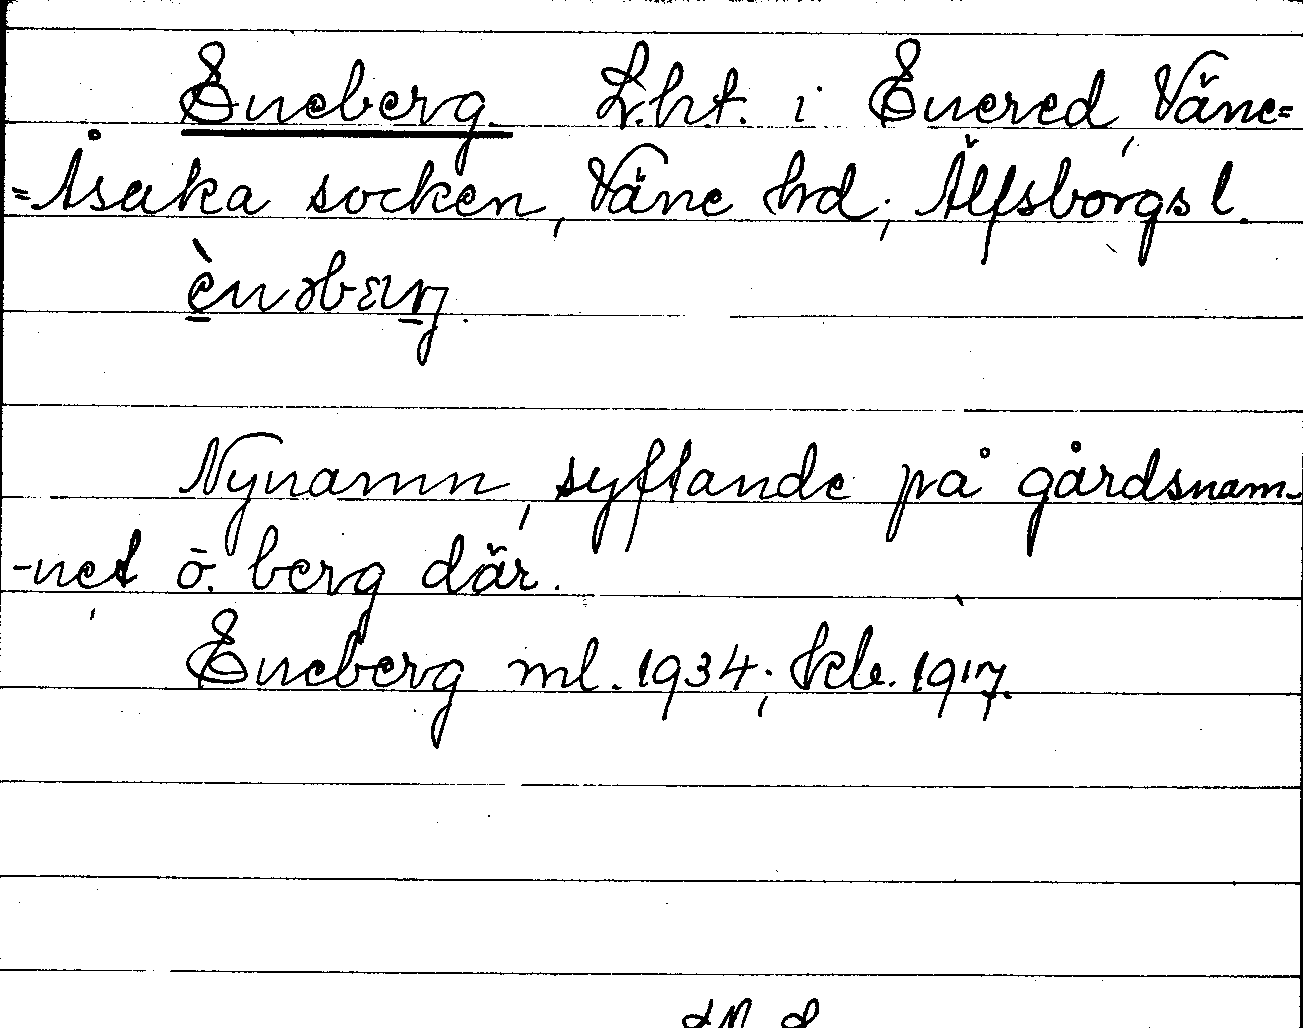 Eneberg. L.ht. i Enered, Väne=
=Åsaka socken, Väne hd; Älfsborgs l.
ènəbærj.
Nynamn, syftande på gårdsnam-
-net o. berg där.
Eneberg ml. 1934; kb. 1917.